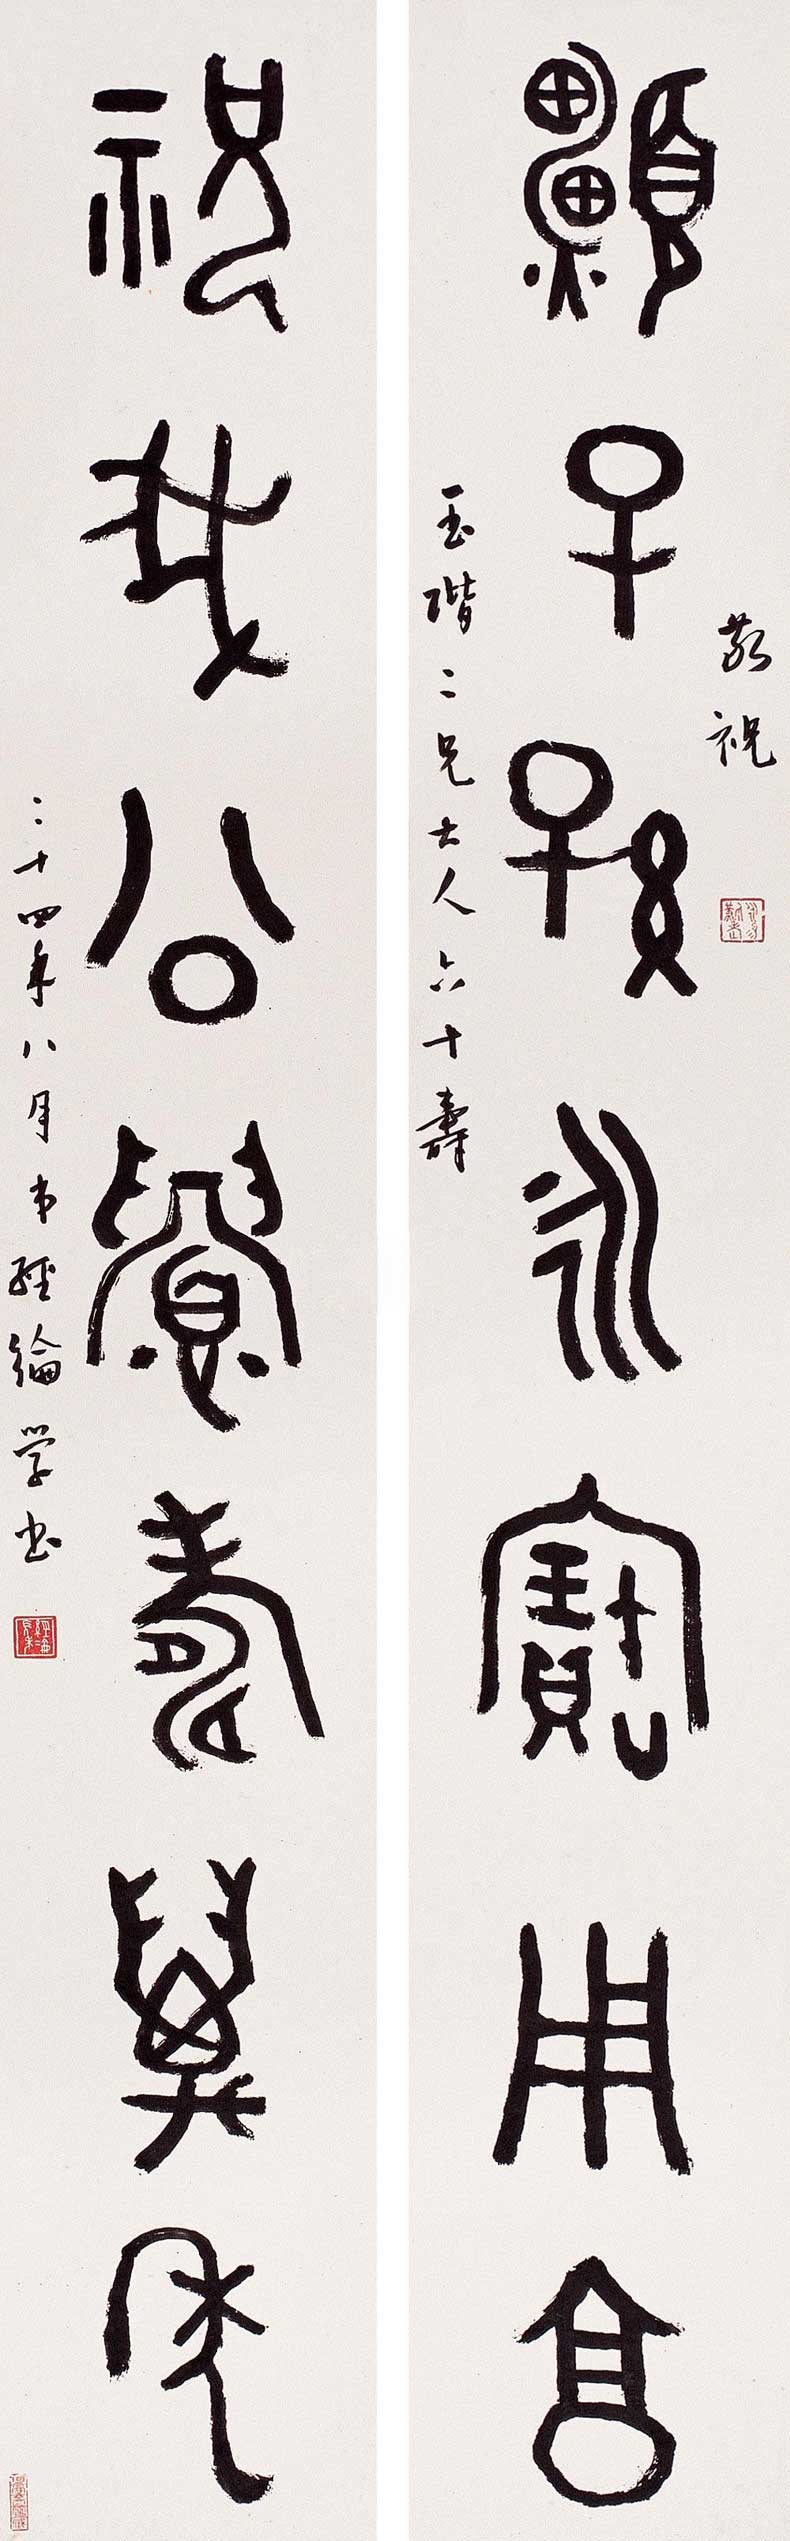 願子孫永寶用享
敬祝
玉階二兄大人六十壽
祝我公眉壽萬年
二十四年八月弟經綸學書